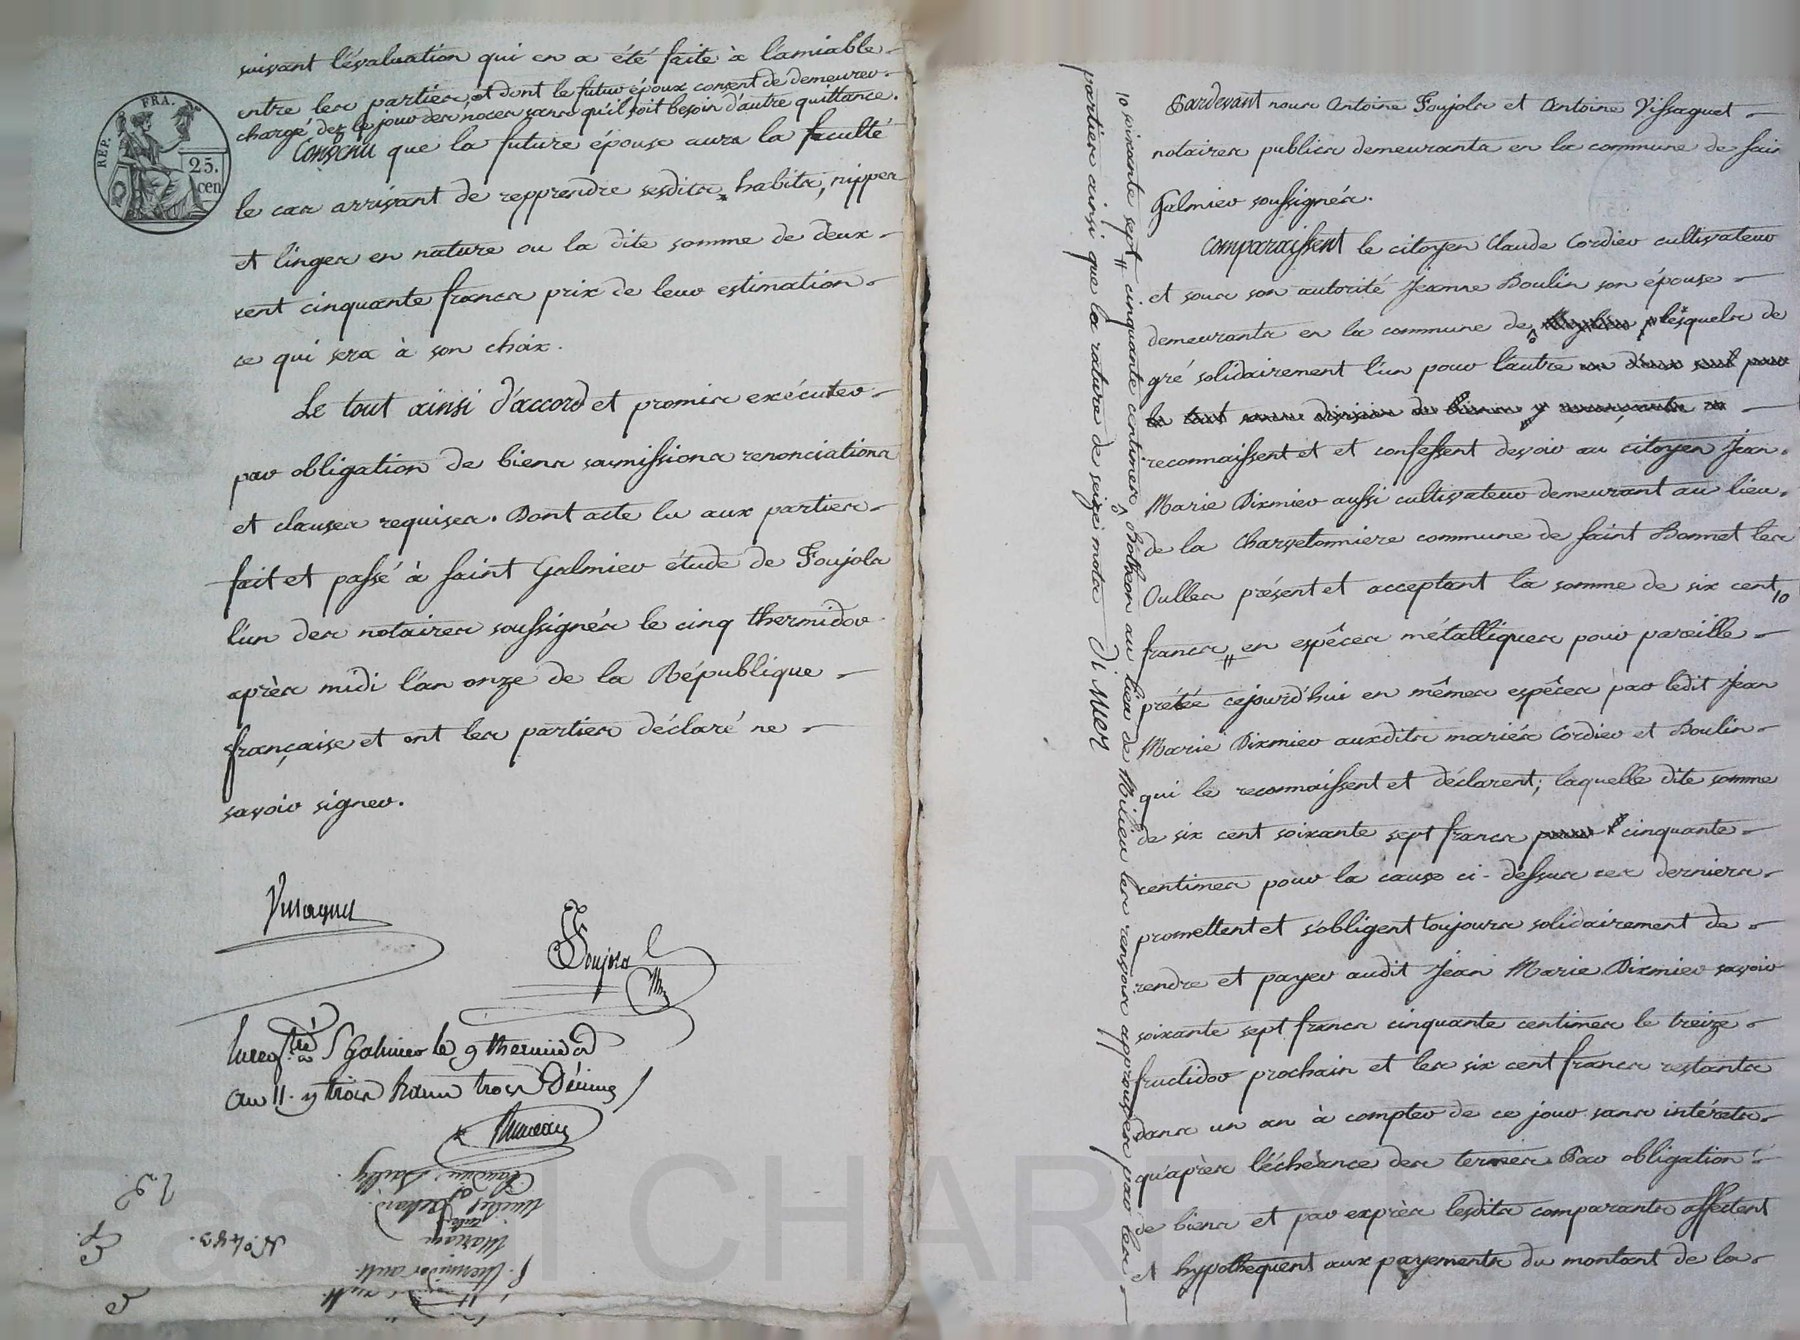 suivant l'évaluation qui en a été faite à l'amiable
entre les parties, et dont le futur époux consent de demeurer
chargé dez le jour des noces sans qu'il soit besoin d'autre quittance.
Convenu que la future épouse aura la faculté
le cas arrivant de repprendre sesdits habits, nippes
et linges en nature ou la dite somme de deux
cent cinquante francs prix de leur estimation
ce qui sera à son choix.
Le tout ainsi d'accord et promis exécuter
par obligation de biens soumissions renonciations
et clauses requises. Dont acte lu aux parties
fait et passé à Saint Galmier étude de Foujols
l'un des notaires soussignés le cinq thermidor
après midi l'an onze de la République
française et ont les parties déclaré ne
savoir signer.
Vissaguet
Foujols
Enregtré a St Galmier le 9 thermidor
an 11. trois francs trois Décimes
REP. FRA.
25.
cen
N° 493.
CHAR
Pardevant nous Antoine Foujols et Antoine Vissaguet
notaires publics demeurants en la commune de Sain
Galmier soussignés.
Comparaissent le citoyen Claude Cordier cultivateur
et sous son autorité Jeanne Boulin son épouse
demeurants en la commune de lesquels de
gré solidairement l'un pour l'autre un d'eux seul pour
le tout sans division de biens y renonçants
reconnaissent et et confessent devoir au citoyen Jean
Marie Dixmier aussi cultivateur demeurant au lieu
de la Charvetonniere commune de Saint Bonnet les
Oulles présent et acceptant la somme de six cent 10
francs # en espêces métalliques pour pareille
prétée cejourd'hui en mêmes espêces par ledit Jean
Marie Dixmier auxdits mariés Cordier et Boulin
qui le reconnaissent et déclarent; laquelle dite somme
de six cent soixante sept francs pour cinquante
centimes pour la cause ci-dessus ces derniers
promettent et s'obligent toujours solidairement de
rendre et payer audit Jean Marie Dixmier savoir
soixante sept francs cinquante centimes le treize
fructidor prochain et les six cent francs restants
dans un an à compter de ce jour sans intérets
qu'après l'échéance des termes. Par obligation
de biens et par exprès lesdits comparants affectent
et hypothequent aux payements du montant de la
10 soixante sept # cinquante centimes Botheon au lieu de les renvois approuvés par les
parties ainsi que la rature de seize mots